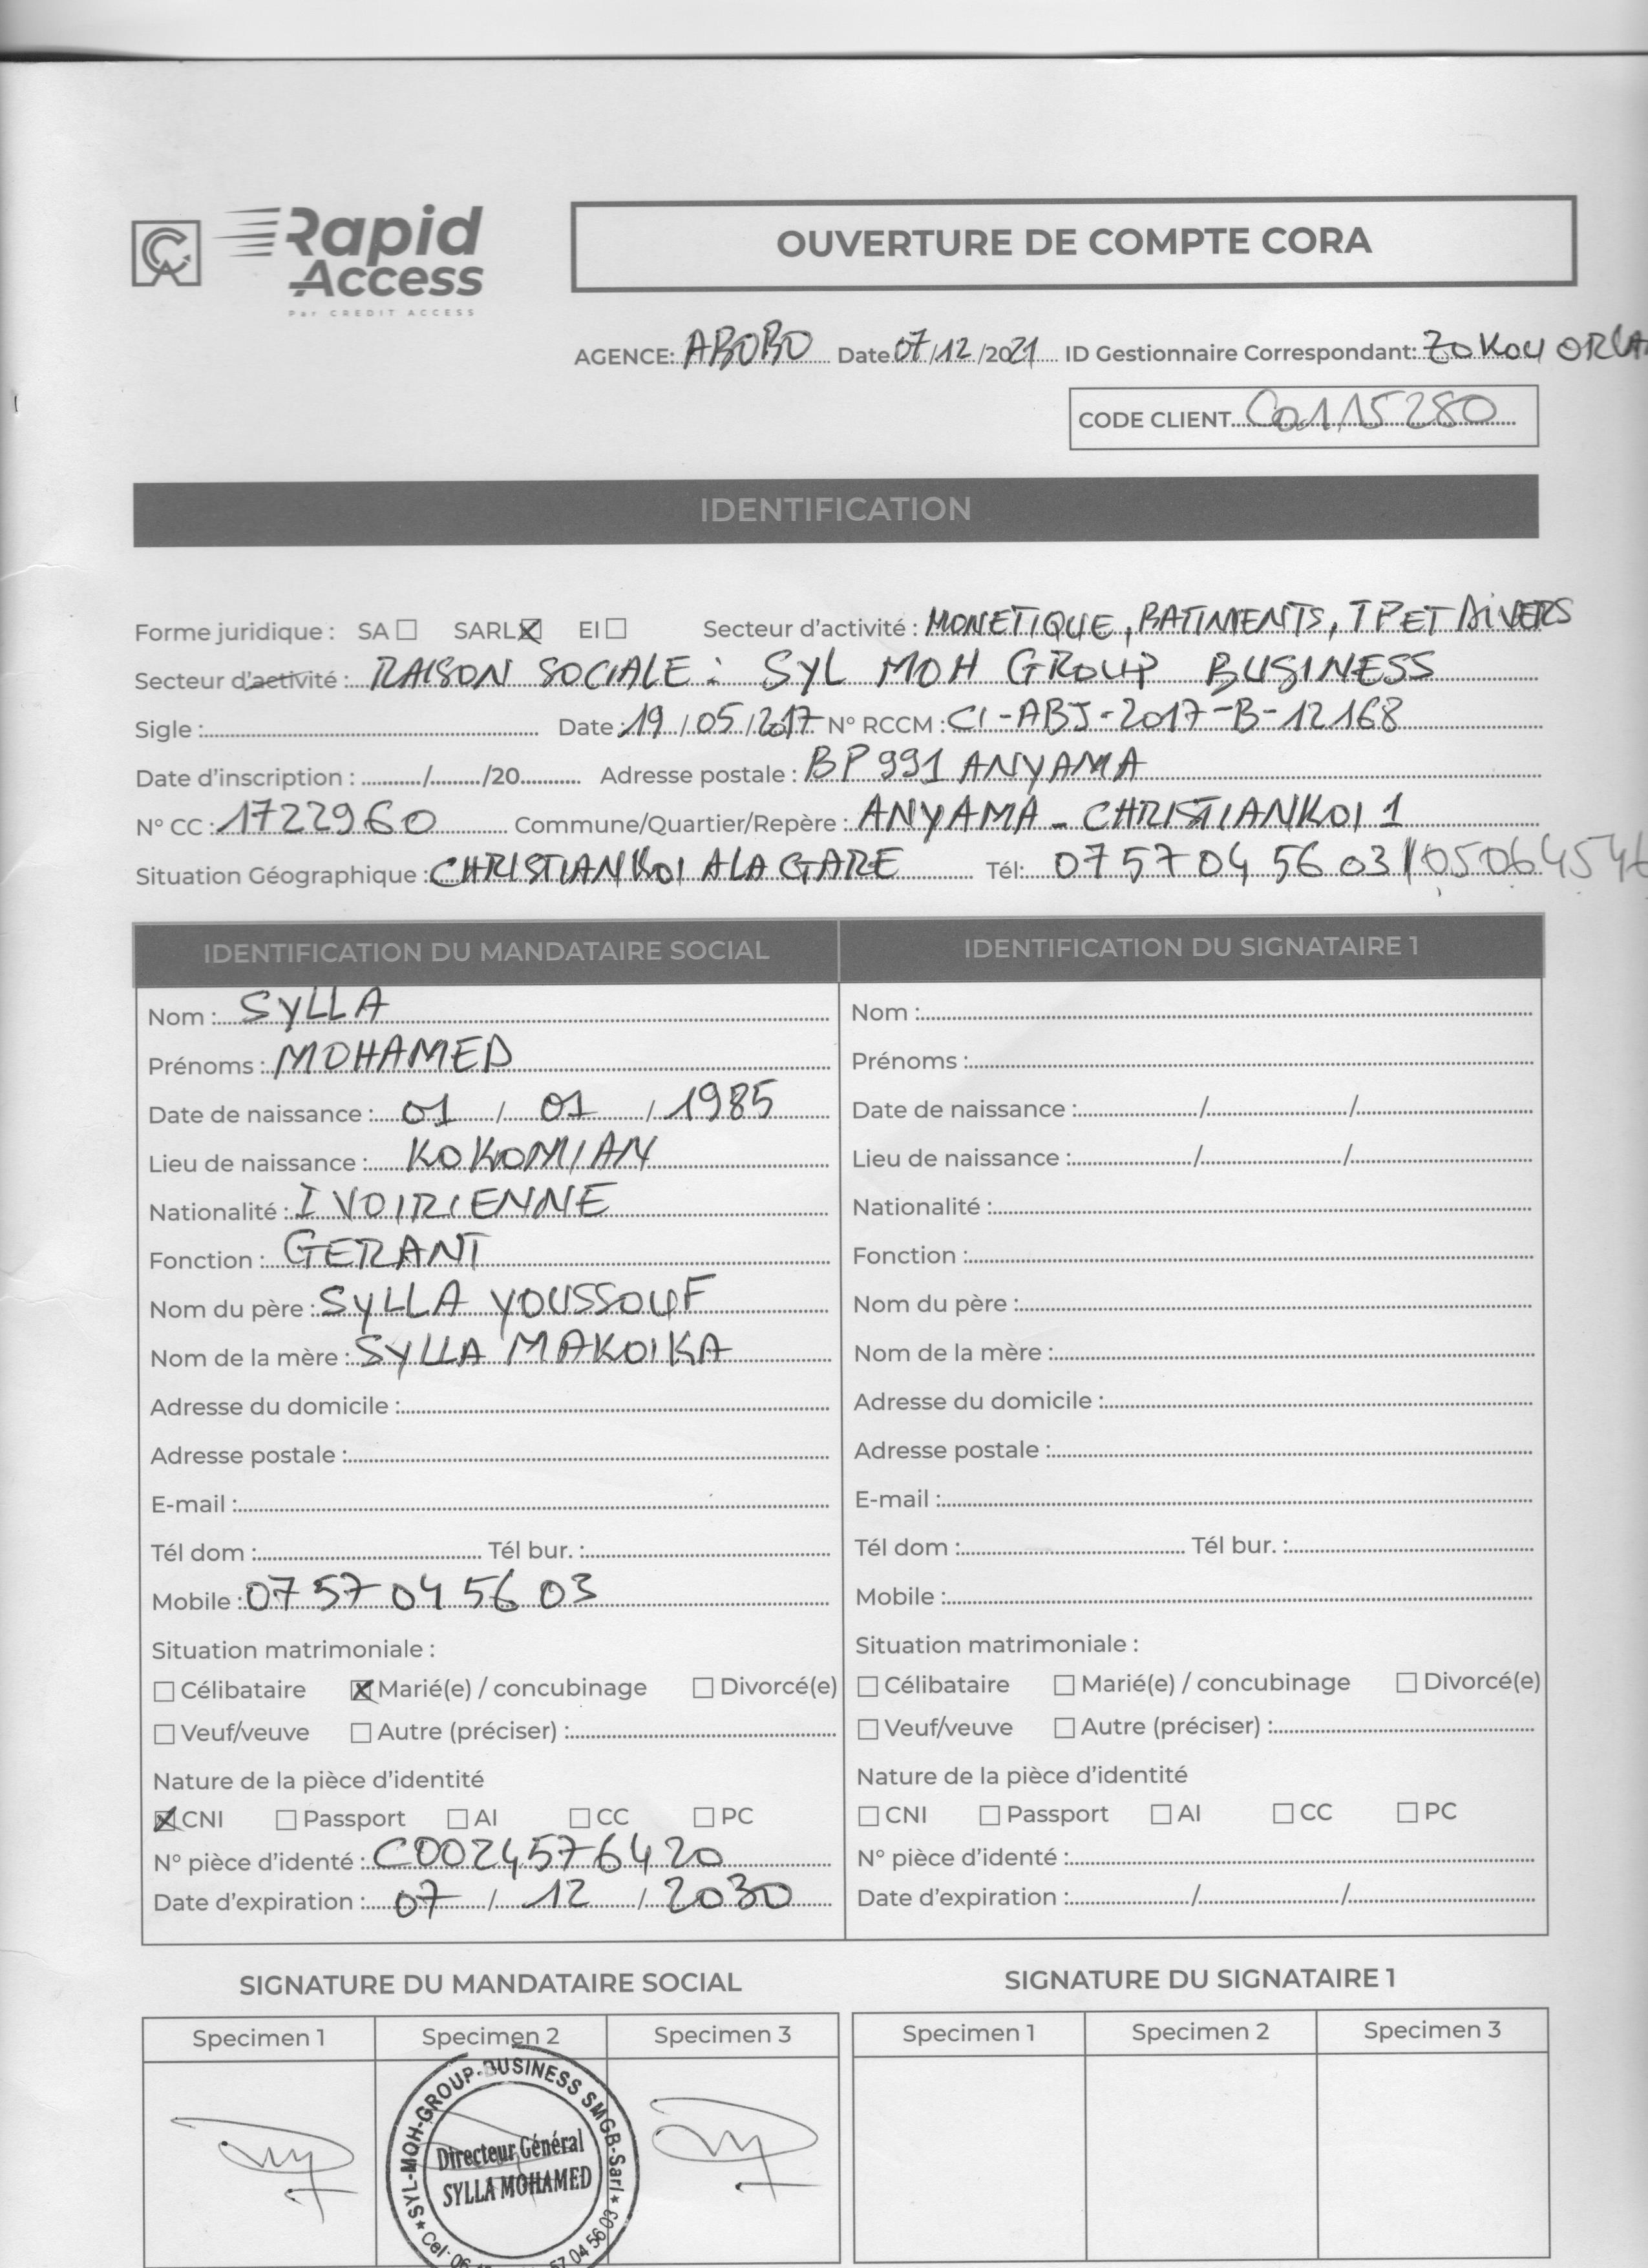 Rapid
Access
Par CREDIT ACCESS
OUVERTURE DE COMPTE CORA
AGENCE: ABOBO Date 07/12/2021 ID Gestionnaire Correspondant: ZOKOU
CODE CLIENT C0115280
IDENTIFICATION
Forme juridique : SA ☐ SARL ☒ EI ☐ Secteur d'activité : MONETIQUE, BATIMENTS, TP ET DIVERS
Secteur d'activité : RAISON SOCIALE : SYL MOH GROUP BUSINESS
Sigle : Date : 19/05/2017 N° RCCM : CI-ABJ-2017-B-12168
Date d'inscription : ........./........./20.......... Adresse postale : BP 991 ANYAMA
N° CC : 1722960 Commune/Quartier/Repère : ANYAMA - CHRISTIANKOI 1
Situation Géographique : CHRISTIANKOI A LA GARE Tél: 07 57 04 56 03 / 05064546
IDENTIFICATION DU MANDATAIRE SOCIAL
Nom : SYLLA
Prénoms : MOHAMED
Date de naissance : 01 / 01 / 1985
Lieu de naissance : KOKOMIAN
Nationalité : IVOIRIENNE
Fonction : GERANT
Nom du père : SYLLA YOUSSOUF
Nom de la mère : SYLLA MAKOIKA
Adresse du domicile :
Adresse postale :
E-mail :
Tél dom : Tél bur. :
Mobile : 07 57 04 56 03
Situation matrimoniale :
☐ Célibataire ☒ Marié(e) / concubinage ☐ Divorcé(e)
☐ Veuf/veuve ☐ Autre (préciser) :
Nature de la pièce d'identité
☒ CNI ☐ Passport ☐ AI ☐ CC ☐ PC
N° pièce d'identé : C0024576420
Date d'expiration : 07 / 12 / 2030
IDENTIFICATION DU SIGNATAIRE 1
Nom :
Prénoms :
Date de naissance : / /
Lieu de naissance : / /
Nationalité :
Fonction :
Nom du père :
Nom de la mère :
Adresse du domicile :
Adresse postale :
E-mail :
Tél dom : Tél bur. :
Mobile :
Situation matrimoniale :
☐ Célibataire ☐ Marié(e) / concubinage ☐ Divorcé(e)
☐ Veuf/veuve ☐ Autre (préciser) :
Nature de la pièce d'identité
☐ CNI ☐ Passport ☐ AI ☐ CC ☐ PC
N° pièce d'identé :
Date d'expiration : / /
SIGNATURE DU MANDATAIRE SOCIAL
Specimen 1 Specimen 2 Specimen 3
SYL-MOH-GROUP-BUSINESS SMGB-Sarl
Directeur Général
SYLLA MOHAMED
Cel: 06 57 04 56 03
SIGNATURE DU SIGNATAIRE 1
Specimen 1 Specimen 2 Specimen 3